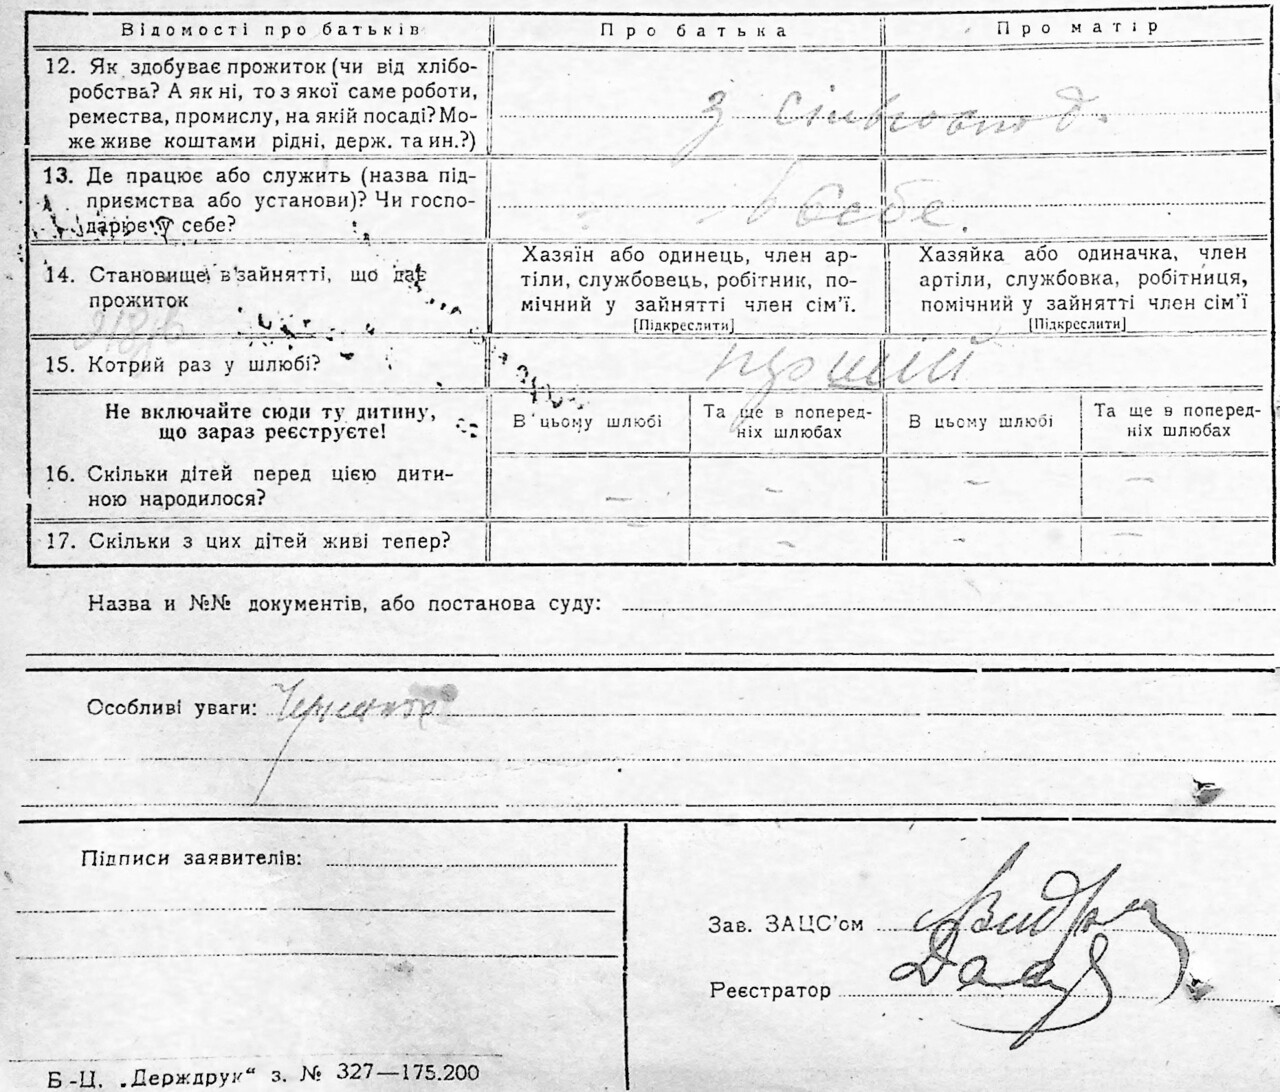 Відомості про батьків Про батька Про матір
12. Як здобуває прожиток (чи від хлібо-
робства? А як ні, то з якої саме роботи,
ремества, промислу, на якій посаді? Мо-
же живе коштами рідні, держ. та ин.?)
з сільгоспод.
13. Де працює або служить (назва під-
приємства або установи)? Чи госпо-
дарює у себе?
в себе
14. Становище в зайнятті, що дає
прожиток
Хазяїн або одинець, член ар-
тіли, службовець, робітник, по-
мічний у зайнятті член сім'ї.
[Підкреслити]
Хазяйка або одиначка, член
артіли, службовка, робітниця,
помічний у зайнятті член сім'ї
[Підкреслити]
15. Котрий раз у шлюбі?
перший
Не включайте сюди ту дитину,
що зараз реєструєте!
В цьому шлюбі
Та ще в поперед-
ніх шлюбах
В цьому шлюбі
Та ще в поперед-
ніх шлюбах
16. Скільки дітей перед цією дити-
ною народилося?
– – – –
17. Скільки з цих дітей живі тепер?
– – –
Назва и №№ документів, або постанова суду:
Особливі уваги:
Підписи заявителів:
Зав. ЗАЦС'ом
Реєстратор
Б-Ц. „Держдрук“ з. № 327—175.200